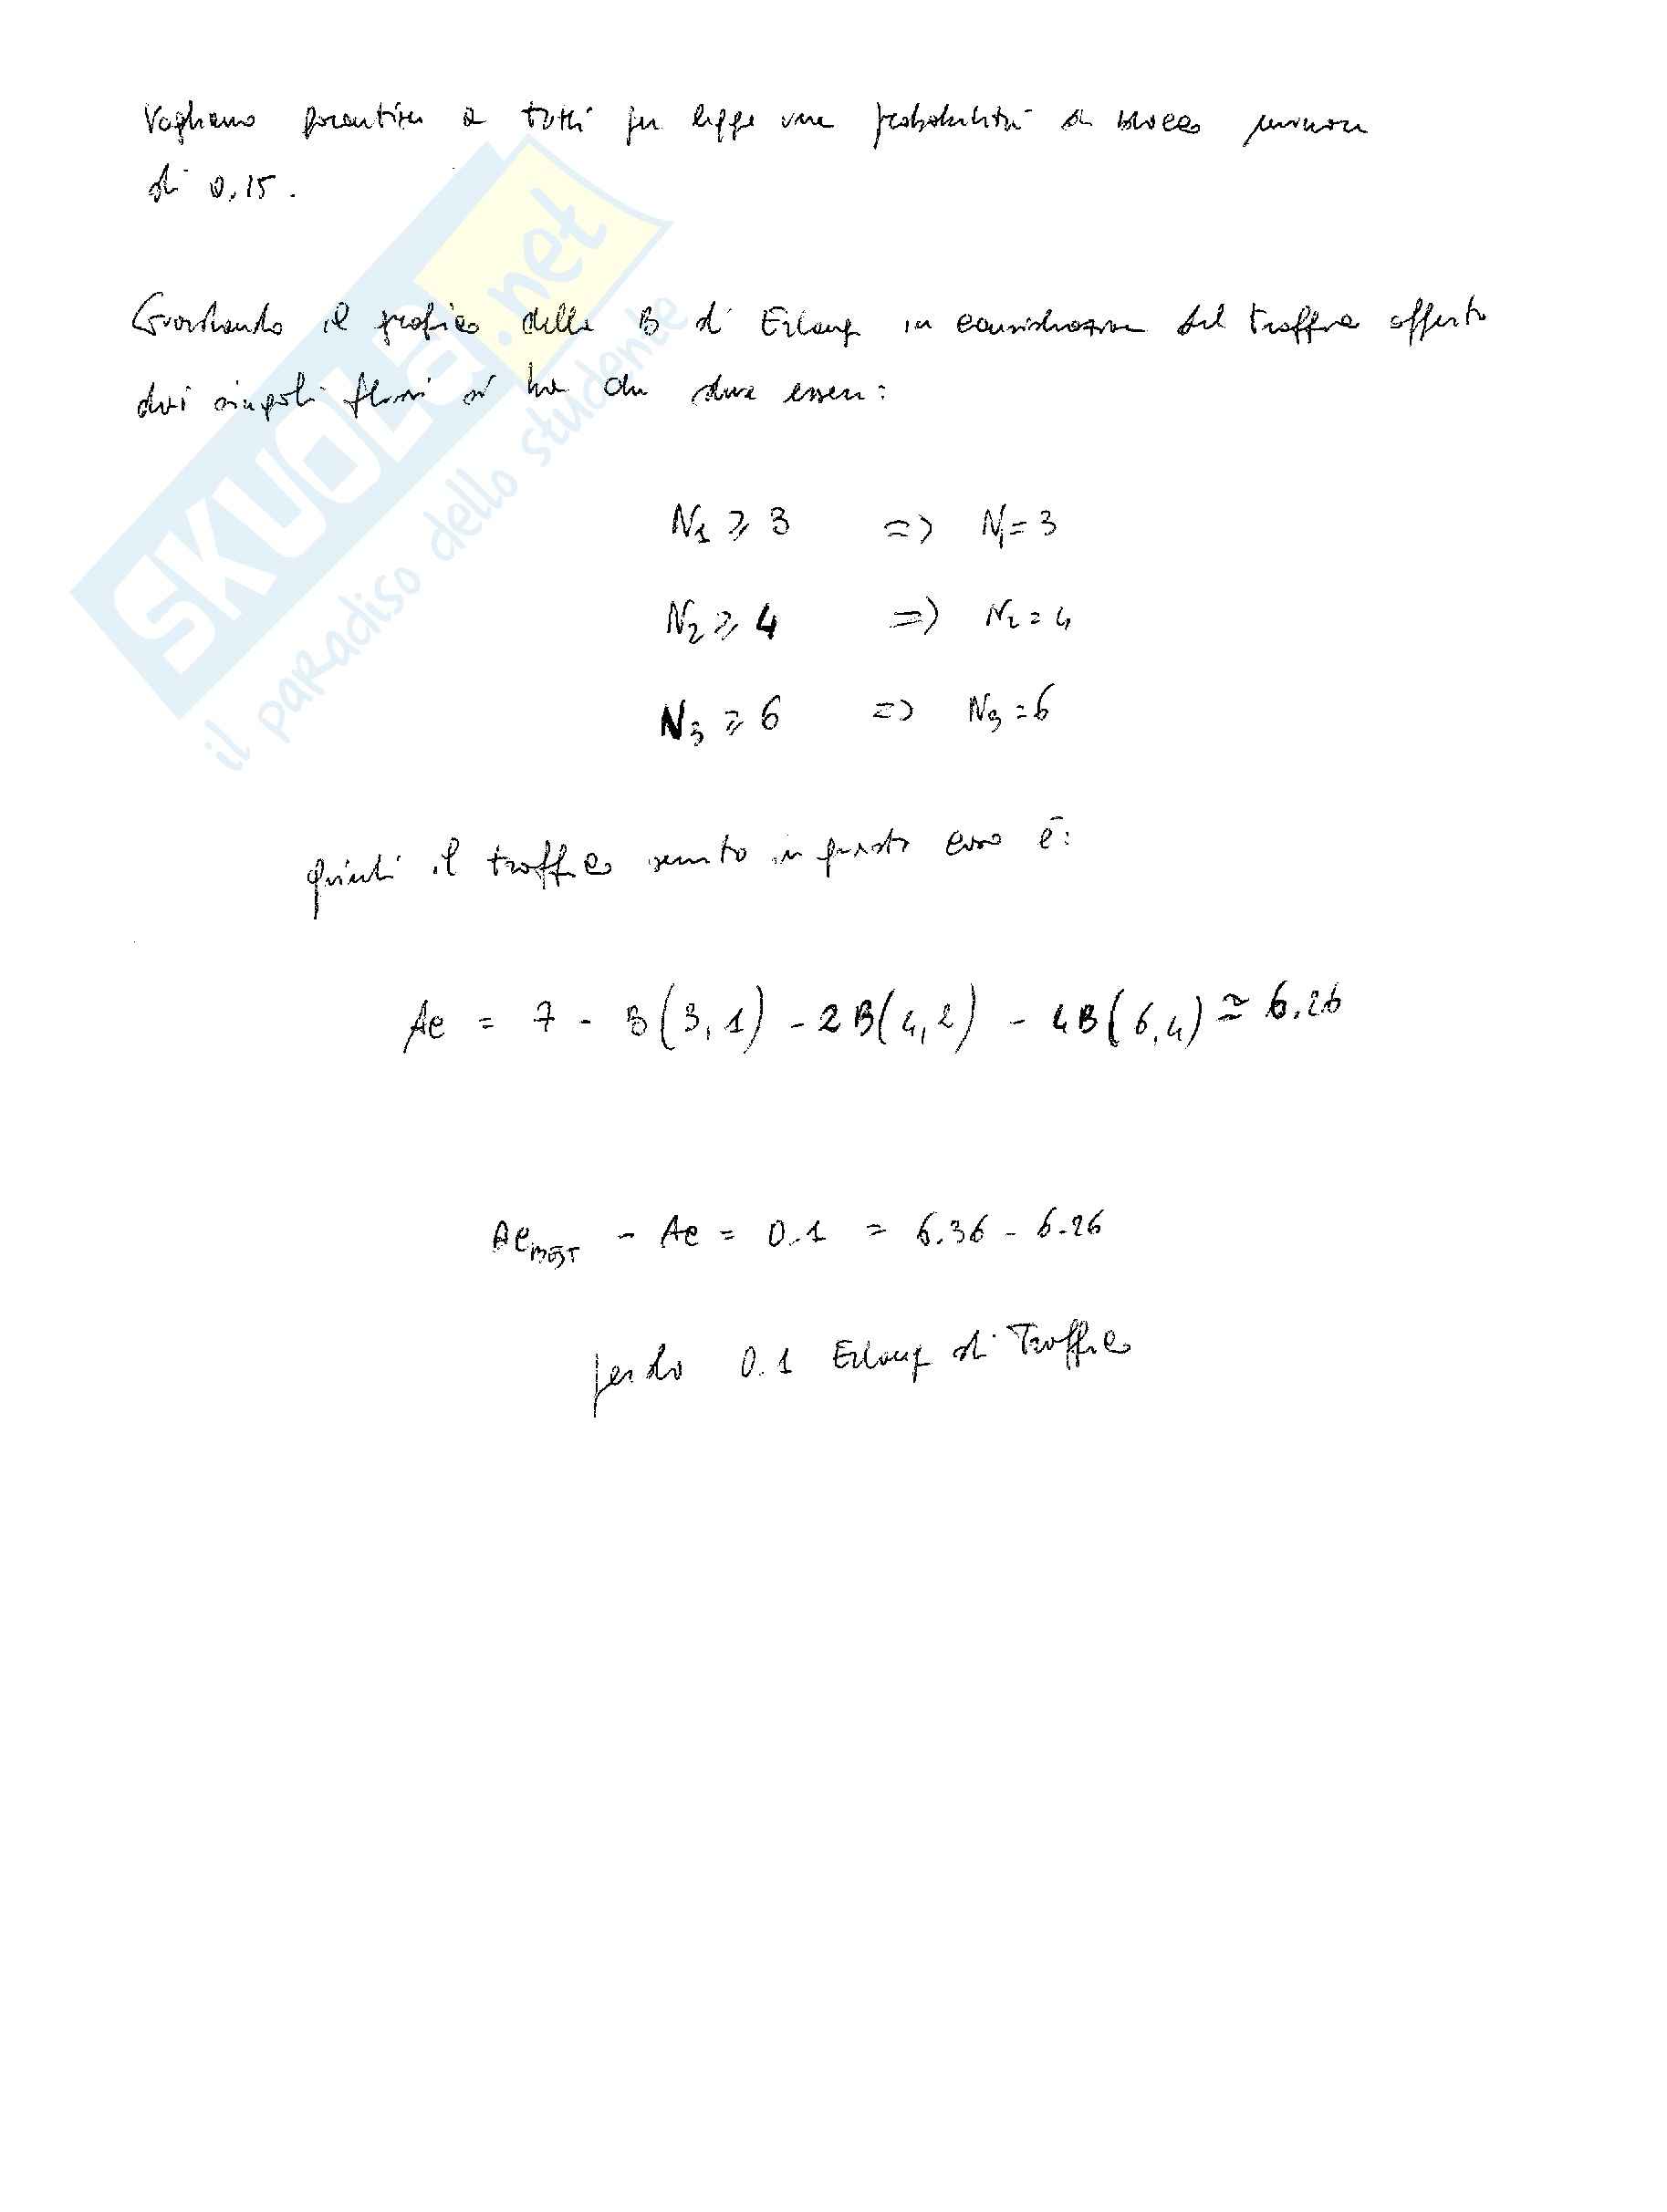 Vogliamo garantire a tutti per legge una probabilità di blocco minore
di 0,15.
Guardando il grafico della B di Erlang in considerazione del traffico offerto
dai singoli flussi si ha che deve essere:
N1 ⩾ 3 => N1 = 3
N2 ⩾ 4 => N2 = 4
N3 ⩾ 6 => N3 = 6
quindi il traffico servito in questo caso è:
Ae = 7 - B(3,1) - 2B(4,2) - 4B(6,4) ≃ 6.26
AeBEST - Ae = 0.1 = 6.36 - 6.26
perdo 0.1 Erlang di Traffico
SKUOLA.net
il paradiso dello studente